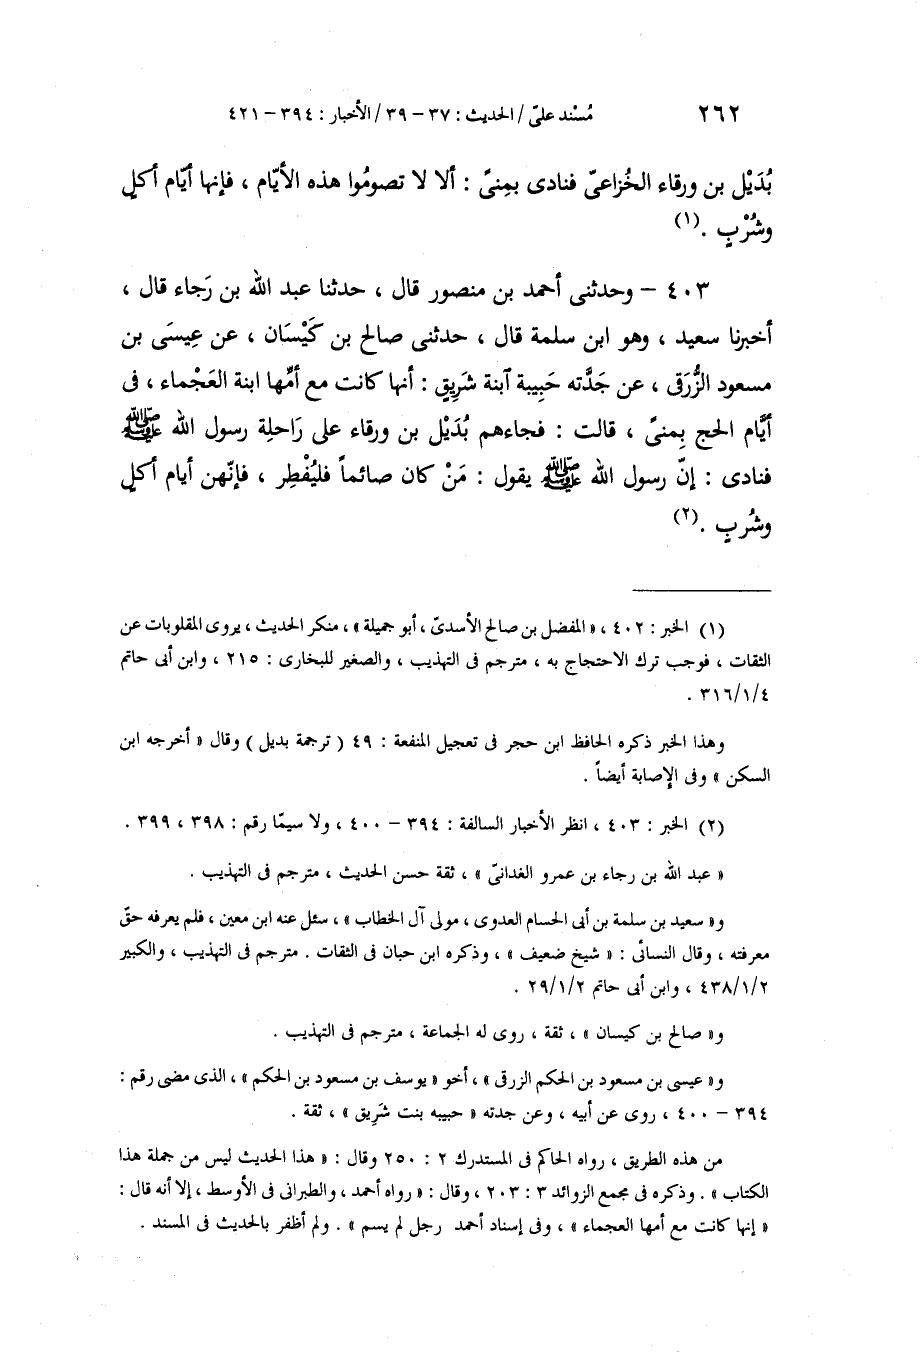 ٢٦٢ مُسْند علىّ / الحديث : ٣٧ – ٣٩ / الأخبار : ٣٩٤ – ٤٢١
بُدَيْل بن ورقاء الخُزاعىّ فنادى بمِنىً : ألا لا تصومُوا هذه الأيّام ، فإنها أيّام أكلٍ
وشُرْبٍ .(١)
٤٠٣ – وحدثنى أحمد بن منصور قال ، حدثنا عبد الله بن رَجاء قال ،
أخبرنا سعيد ، وهو ابن سلمة قال ، حدثنى صالح بن كَيْسَان ، عن عِيسَى بن
مسعود الزُّرَقى ، عن جَدَّته حَبِيبة آبنة شَرِيقٍ : أنها كانت مع أمِّها ابنة العَجْماء ، فى
أيَّام الحج بِمنىً ، قالت : فجاءهم بُدَيْل بن ورقاء على رَاحلِة رسول الله ﷺ
فنادى : إنّ رسول الله ﷺ يقول : مَنْ كان صائماً فليُفْطِر ، فإنّهن أيام أكلٍ
وشُربٍ .(٢)
(١) الخبر : ٤٠٢ ، « المفضل بن صالح الأسدىّ ، أبو جميلة » ، منكر الحديث ، يروى المقلوبات عن
الثقات ، فوجب ترك الاحتجاج به ، مترجم فى التهذيب ، والصغير للبخارى : ٢١٥ ، وابن أبى حاتم
٣١٦/١/٤ .
وهذا الخبر ذكره الحافظ ابن حجر فى تعجيل المنفعة : ٤٩ ( ترجمة بديل ) وقال « أخرجه ابن
السكن » وفى الإصابة أيضاً .
(٢) الخبر : ٤٠٣ ، انظر الأخبار السالفة : ٣٩٤ – ٤٠٠ ، ولا سيمّا رقم : ٣٩٨ ، ٣٩٩ .
« عبد الله بن رجاء بن عمرو الغدانىّ » ، ثقة حسن الحديث ، مترجم فى التهذيب .
و« سعيد بن سلمة بن أبى الحسام العدوى ، مولى آل الخطاب » ، سئل عنه ابن معين ، فلم يعرفه حقّ
معرفته ، وقال النسائى : « شيخ ضعيف » ، وذكره ابن حبان فى الثقات . مترجم فى التهذيب ، والكبير
٤٣٨/١/٢ ، وابن أبى حاتم ٢٩/١/٢ .
و« صالح بن كيسان » ، ثقة ، روى له الجماعة ، مترجم فى التهذيب .
و« عيسى بن مسعود بن الحكم الزرقى » ، أخو « يوسف بن مسعود بن الحكم » ، الذى مضى رقم :
٣٩٤ – ٤٠٠ ، روى عن أبيه ، وعن جدته « حبيبه بنت شَرِيق » ، ثقة .
من هذه الطريق ، رواه الحاكم فى المستدرك ٢ : ٢٥٠ وقال : « هذا الحديث ليس من جملة هذا
الكتاب » . وذكره فى مجمع الزوائد ٣ : ٢٠٣ ، وقال : « رواه أحمد ، والطبرانى فى الأوسط ، إلا أنه قال :
« إنها كانت مع أمها العجماء » ، وفى إسناد أحمد رجل لم يسم » . ولم أظفر بالحديث فى المسند .